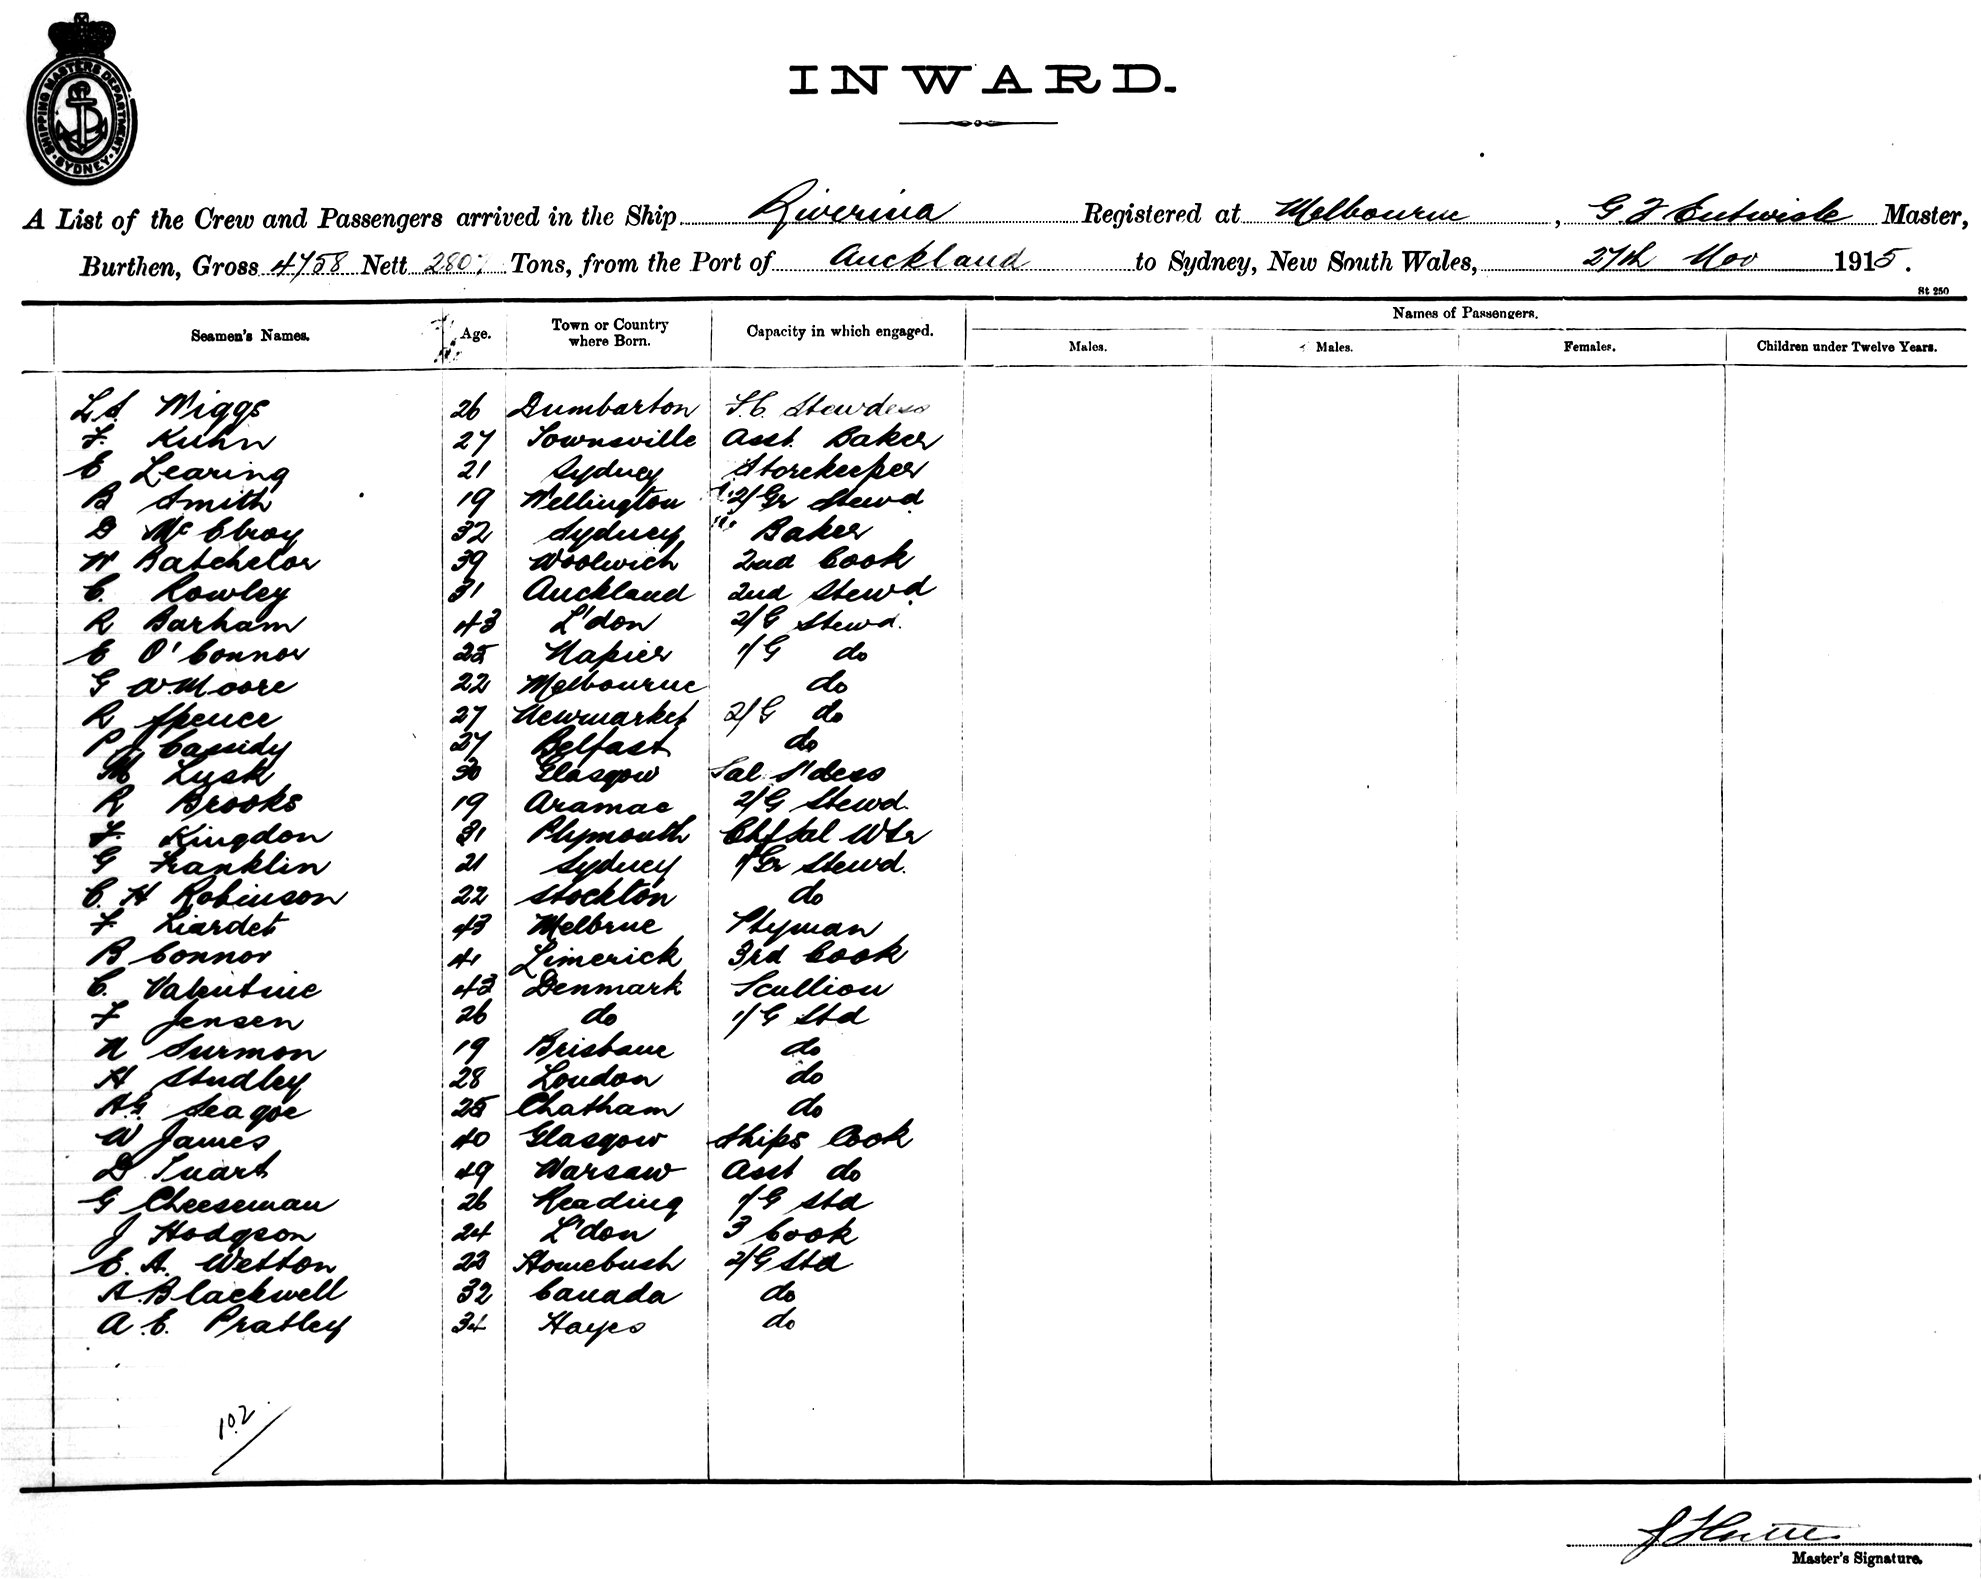 SHIPPING MASTERS DEPARTMENT
SYDNEY
INWARD.
A List of the Crew and Passengers arrived in the Ship Riverina Registered at Melbourne, G.F Entwisle Master,
Burthen, Gross 4758 Nett 280 Tons, from the Port of Auckland to Sydney, New South Wales, 27th Nov 1915.
St 250
Names of Passengers.
Seamen's Names. Age. Town or Country where Born. Capacity in which engaged. Males. Males. Females. Children under Twelve Years.
Wiggs 26 Dumbarton Stewdess
F. Kuhn 27 Townsville Asst. Baker
E Learing 21 Sydney Storekeeper
B Smith 19 Wellington 2/Gr Stewd
D McElroy 32 Sydney Baker
W Batchelor 39 Woolwich 2nd Cook
C. Rowley 31 Auckland 2nd Stewd
R Barham 43 L'don 2/G Stewd.
E O'Connor 25 Napier 1/G do
G W. Moore 22 Melbourne do
R Spence 27 Newmarket 2/G do
P J Cassidy 27 Belfast do
M Lusk 30 Glasgow Sal S'dess
R Brooks 19 Aramac 2/G Stewd.
F. Kingdon 31 Plymouth Chf Sal Wtr
G Franklin 21 Sydney 1/Gr Stewd.
C. H Robinson 22 Stockton do
F Liardet 43 Melbrne Ptyman
B Connor 41 Limerick 3rd Cook
C. Valentine 43 Denmark Scullion
F Jensen 26 do 1/G Std
N Surmon 19 Brisbane do
H Studley 28 London do
H.G. Seagoe 25 Chatham do
W James 40 Glasgow Ships Cook
D Tuart 49 Warsaw Asst do
G Cheeseman 26 Reading 1/G Std
J Hodgson 24 L'don 3 Cook
E. A. Wetton 23 Homebush 2/G Std
A. Blackwell 32 Canada do
A. E. Pratley 34 Hayes do
102
Master's Signature.